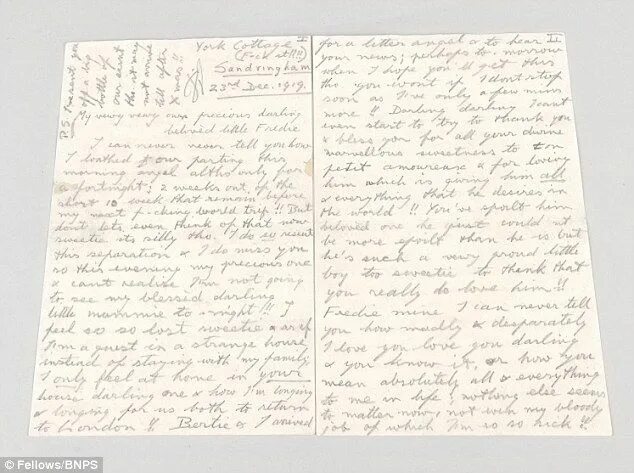 P.S. Present you
off a day
bottle of
our scent
tho it may
not arrive
till after
X mas!!
York Cottage
(F-ck it!!!)
Sandringham
23rd Dec. 1919.
My vewy vewy own precious darling
beloved little Fredie
I can never never tell you how
I loathed & our parting this
morning angel altho only for
a fortnight; 2 weeks out of the
short 10 week that remain before
my next f-cking world trip!! But
don't lets even think of that now
sweetie its silly tho. I do so resent
this separation & I do miss you
so this evening my precious one
& cant realise I'm not going
to see my blessed darling
little mummie to-night!! I
feel so so lost sweetie & as if
I'm a guest in a strange house
instead of staying with my family
I only feel at home in your
house darling one & how I'm longing
& longing for us both to return
to London!! Bertie & I arrived
II
for a letter angel & to hear
your news; perhaps to-morrow
when I hope you'll get this
tho you won't if I dont stop
soon as I've only a few mins
more!! Darling darling I cant
even start to try to thank you
& bless you for all your divine
marvellous sweetness to ton
petit amoureux & for loving
him which is giving him all
& everything that he desires in
the world!! You've spoilt him
beloved one he just could nt
be more spoilt than he is but
he's such a vewy proud little
boy too sweetie to think that
you really do love him!!
Fredie mine I can never tell
you how madly & desparately
I love you love you darling
& you know it, or how you
mean absolutely all & everything
to me in life; nothing else seems
to matter now, not even my bloody
job of which I'm so so sick!!
Fellows/BNPS